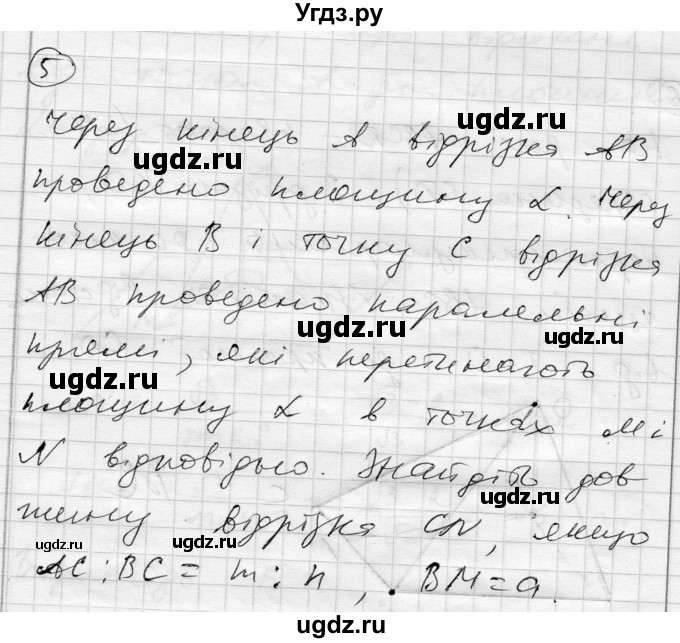 Угдз.ру
5
Через кінець A відрізка AB
проведено площину α. Через
кінець B і точку C відрізка
AB проведено паралельні
прямі, які перетинають
площину α в точках M і
N відповідно. Знайдіть дов
жину відрізка CN, якщо
AC:BC = m:n, BM=a.
ugdz.ru
ugdz.ru
ugdz.ru
ugdz.ru
ugdz.ru
ugdz.ru
ugdz.ru
ugdz.ru
ugdz.ru
ugdz.ru